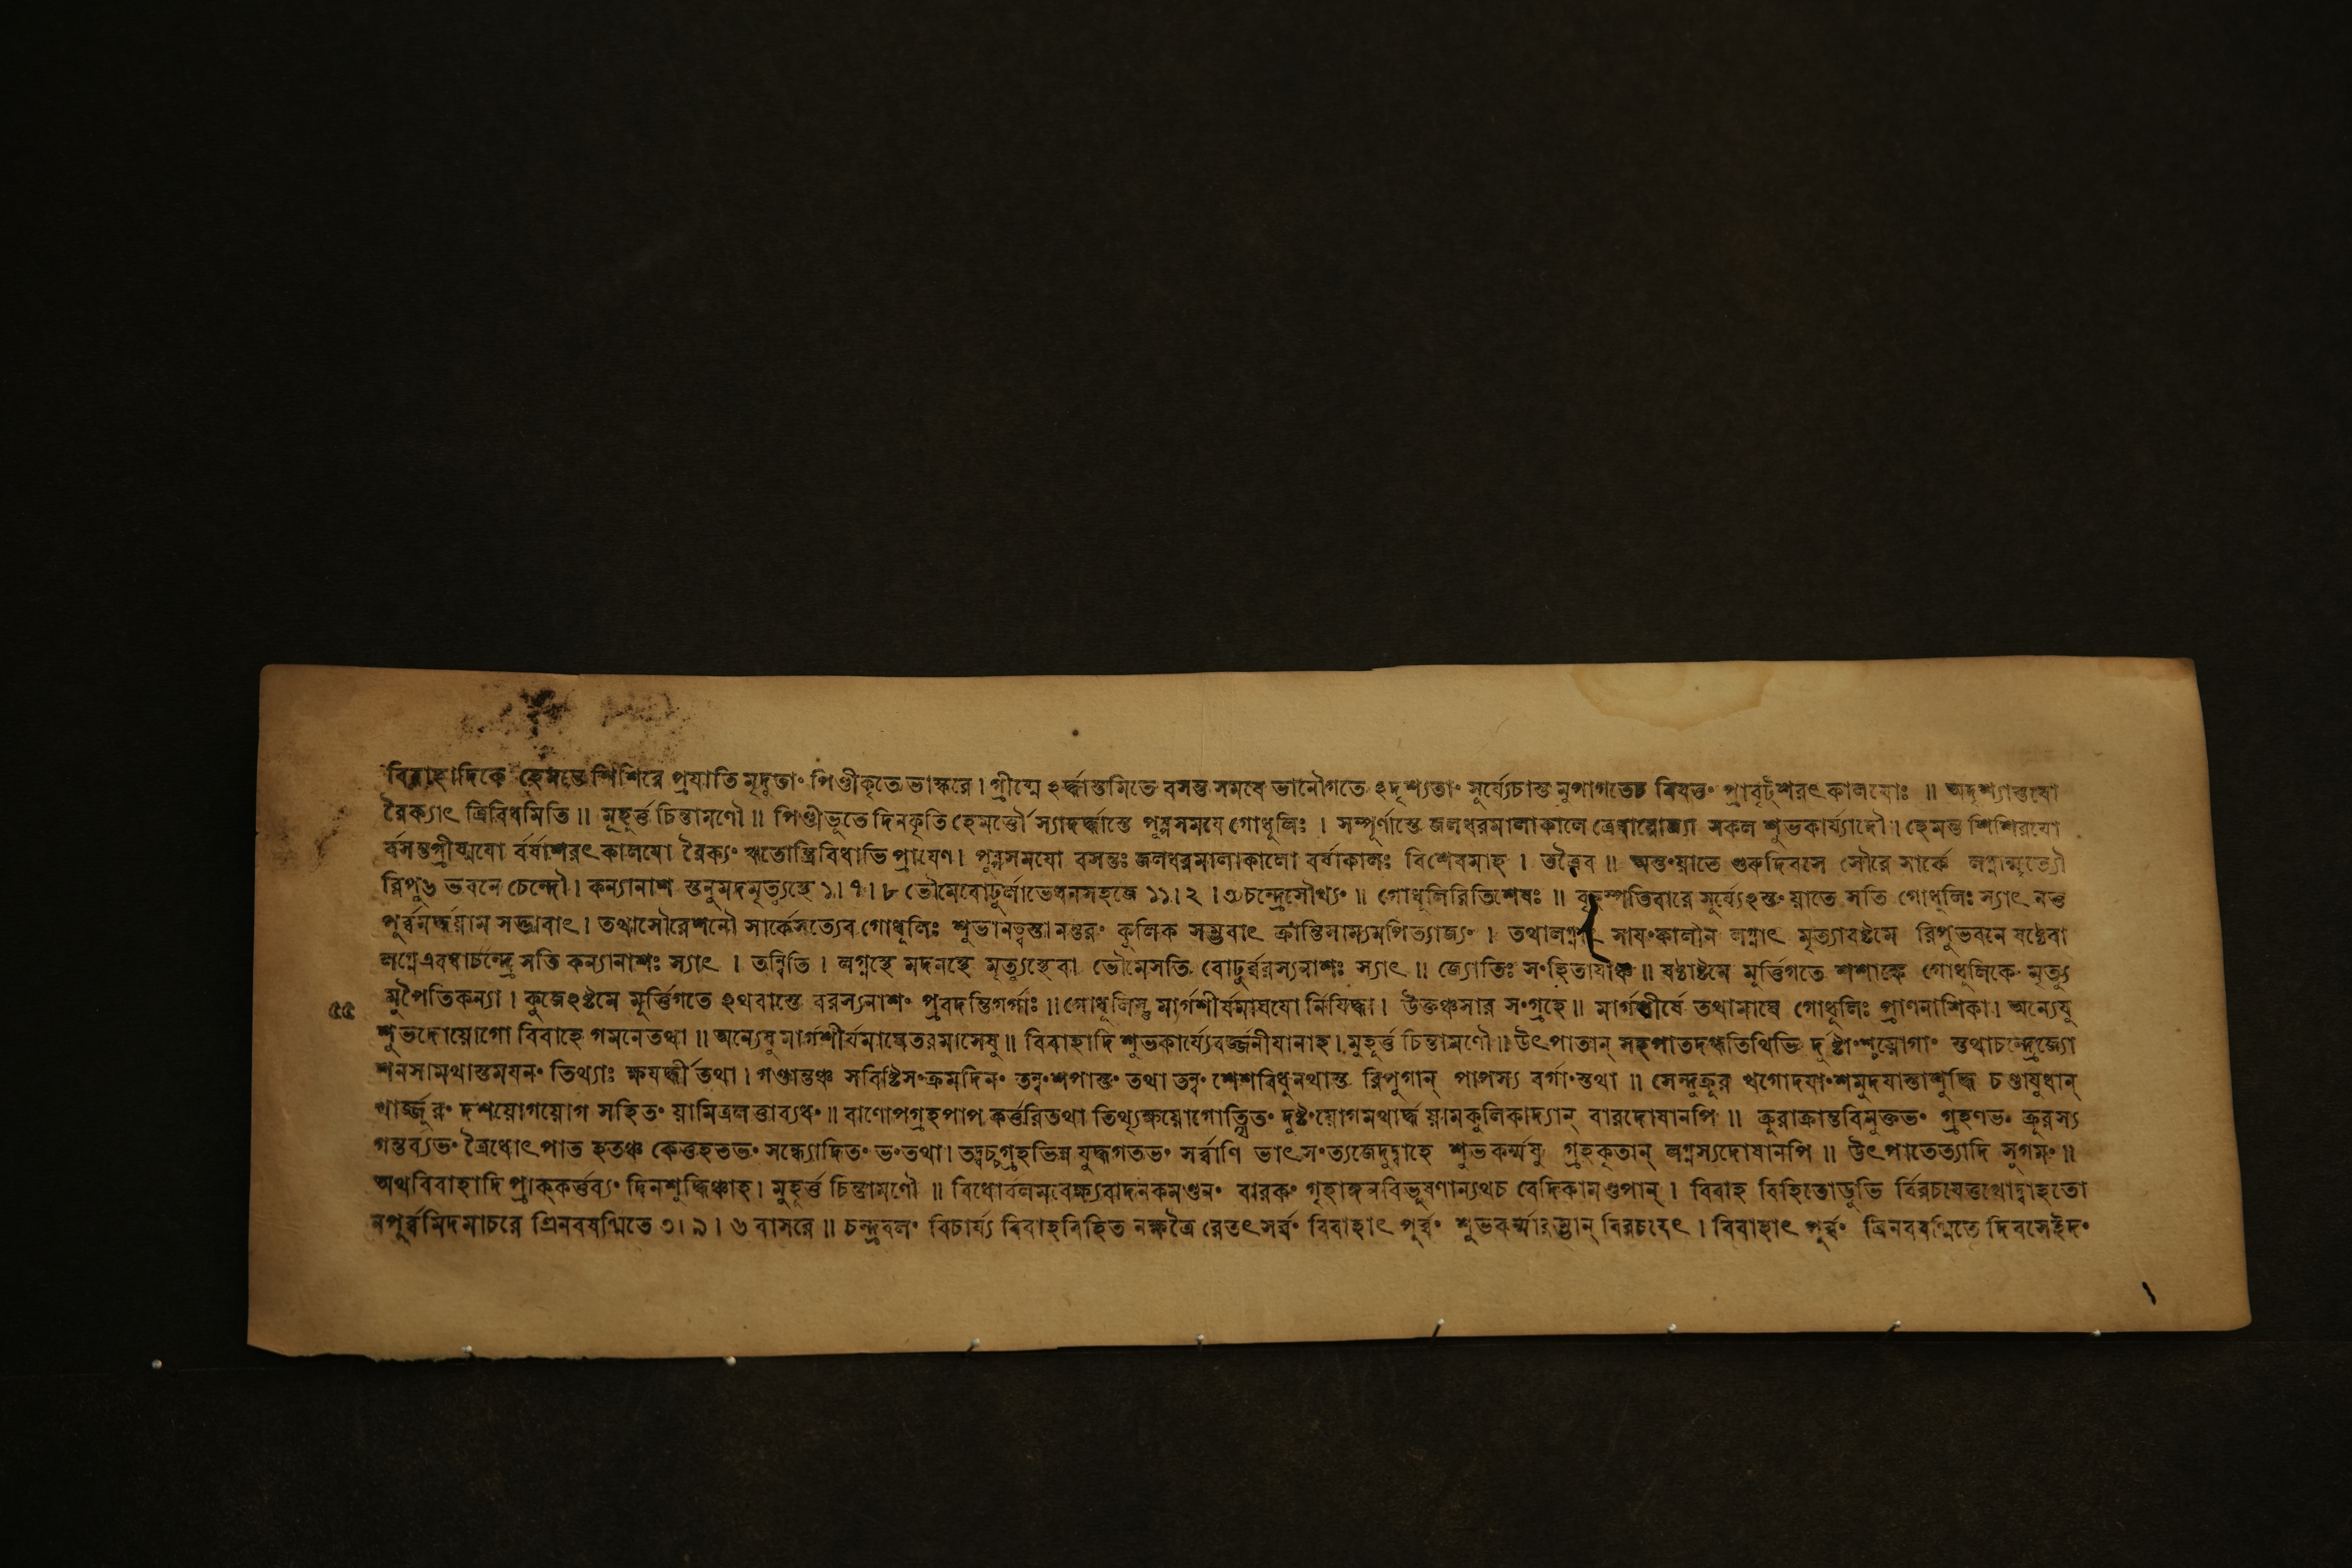 বিবাহাদিকে হেমন্তে শিশিরে প্রযাতি মৃদুতাং পিণ্ডীকৃতে ভাস্করে। গ্রীষ্মেঽর্দ্ধাস্তমিতে বসন্ত সমযে ভানৌগতেঽদৃশ্যতাং সূর্য্যেচাস্ত মুপাগতেচ নিযতং প্রাবৃট্শরৎ কালযোঃ ॥ অদৃশ্যাস্তযো
রৈক্যাৎ ত্রিবিধমিতি॥ মুহূর্ত্ত চিন্তামণৌ॥ পিণ্ডীভূতে দিনকৃতি হেমর্ত্তৌ স্যাদর্দ্ধাস্তে পূষ্ণসময়ে গোধূলিঃ । সম্পূর্ণাস্তে জলধরমালাকালে ত্রেধাযোজ্যা সকল শুভকার্য্যাদৌ। হেমন্ত শিশিরযো
র্বসন্তগ্রীষ্মযো র্বর্ষাশরৎ কালযো রৈক্যং ঋতোস্ত্রিবিধাভি প্রাযেণ। পূষ্ণসময়ো বসন্তঃ জলধরমালাকালো বর্ষাকালঃ বিশেষমাহ । তত্রৈব ॥ অস্তংয়াতে গুরুদিবসে সৌরে সার্কে লগ্নান্মৃত্যৌ
রিপু৬ ভবনে চেন্দৌ। কন্যানাশ স্তনুমদমৃত্যুস্থে ১। ৭। ৮ ভৌমেবোঢুর্লাভেধনসহজে ১১। ২ । ৩ চন্দ্রেসৌখ্যং ॥ গোধূলিরিতিশেষঃ ॥ বৃহস্পতিবারে সূর্য্যেঽস্তংয়াতে সতি গোধূলিঃ স্যাৎ নতু
পূর্ব্বমর্দ্ধয়াম সদ্ভাবাৎ। তথাসৌরেশনৌ সার্কেসত্যেব গোধূলিঃ শুভানত্বস্তানন্তরং কুলিক সম্ভবাৎ ক্রান্তিসাম্যমপিত্যাজ্যং । তথালগ্নাৎ সাযংকালীন লগ্নাৎ মৃত্যাবষ্টমে রিপুভবনে ষষ্ঠেবা
লগ্নেএবঘাচন্দ্রে সতি কন্যানাশঃ স্যাৎ । তন্বিতি । লগ্নস্থে মদনস্থে মৃত্যুস্থেবা ভৌমেসতি বোঢুর্ব্বরস্যনাশঃ স্যাৎ॥ জ্যোতিঃ সংহিতাযাঞ্চ॥ ষষ্ঠাষ্টমে মূর্ত্তিগতে শশাঙ্কে গোধূলিকে মৃত্যু
৫৫ মুপৈতিকন্যা। কুজেঽষ্টমে মূর্ত্তিগতেঽথবাস্তে বরস্যনাশং প্রবদন্তিগর্গাঃ॥ গোধূলিস্তু মার্গশীর্ষমাঘযো র্নিষিদ্ধা। উক্তঞ্চসার সংগ্রহে॥ মার্গশীর্ষে তথামাঘে গোধূলিঃ প্রাণনাশিকা। অন্যেষু
শুভদোয়োগো বিবাহে গমনেতথা॥ অন্যেষু মার্গশীর্ষমাঘেতরমাসেষু॥ বিবাহাদি শুভকার্য্যেবর্জ্জনীযানাহ। মুহূর্ত্ত চিন্তামণৌ॥ উৎপাতান্ সহপাতদগ্ধতিথিভি র্দুষ্টাংশ্চয়োগাং স্তথাচন্দ্রেজ্যো
শনসামথাস্তমযনং তিথ্যাঃ ক্ষযর্দ্ধী তথা। গণ্ডান্তঞ্চ সবিষ্টিসংক্রমদিনং তন্বংশপাস্তং তথা তন্বং শেশবিধূনথাস্ত রিপুগান্ পাপস্য বর্গাংস্তথা ॥ সেন্দুক্রূর খগোদযাংশমুদযাস্তাশুদ্ধি চণ্ডাযুধান্
খার্জ্জূরং দশয়োগয়োগ সহিতং য়ামিত্রলত্তাব্যধং॥ বাণোপগ্রহপাপ কর্ত্তরিতথা তিথ্যৃক্ষয়োগোত্থিতং দুষ্টংয়োগমথার্দ্ধ য়ামকুলিকাদ্যান্ বারদোষানপি॥ ক্রূরাক্রান্তবিমুক্তভং গ্রহণভং ক্রূরস্য
গন্তব্যভং ত্রৈধোৎপাত হতঞ্চ কেতুহতভং সন্ধ্যোদিতং ভংতথা। তদ্বচ্চগ্রহভিন্ন যুদ্ধগতভং সর্ব্বাণি ভাৎসংত্যজেদুদ্বাহে শুভ কর্ম্মষু গ্রহকৃতান্ লগ্নস্যদোষানপি॥ উৎপাতেত্যাদি সুগমং॥
অথবিবাহাদি প্রাক্কর্ত্তব্যং দিনশুদ্ধিঞ্চাহ। মুহূর্ত্ত চিন্তামণৌ ॥ বিধোর্বলমবেক্ষ্যবাদনকমণ্ডনং বারকং গৃহাঙ্গনবিভূষণান্যথচ বেদিকামণ্ডপান্। বিবাহ বিহিতোডুভি র্বিরচযেত্তথোদ্বাহতো
নপূর্ব্বমিদমাচরে ত্রিনবষণ্মিতে ৩। ৯। ৬ বাসরে॥ চন্দ্রবলং বিচার্য্য বিবাহবিহিত নক্ষত্রৈ রেতৎসর্ব্বং বিবাহাৎ পূর্ব্বং শুভকর্ম্মারম্ভান্ বিরচযেৎ । বিবাহাৎ পূর্ব্বং ত্রিনবষণ্মিতে দিবসেইদং